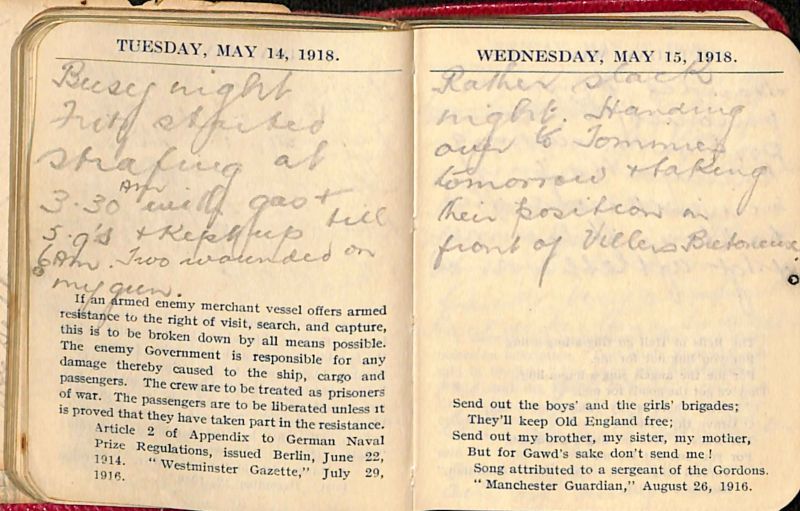 TUESDAY, MAY 14, 1918.
Busy night
Fritz started
strafing at
3.30 AM with gas +
5.9's + kept up till
6 AM. Two wounded on
my gun.
If an armed enemy merchant vessel offers armed
resistance to the right of visit, search, and capture,
this is to be broken down by all means possible.
The enemy Government is responsible for any
damage thereby caused to the ship, cargo and
passengers. The crew are to be treated as prisoners
of war. The passengers are to be liberated unless it
is proved that they have taken part in the resistance.
Article 2 of Appendix to German Naval
Prize Regulations, issued Berlin, June 22,
1914. "Westminster Gazette," July 29,
1916.
WEDNESDAY, MAY 15, 1918.
Rather slack
night. Handing
over to Tommies
tomorrow + taking
their position in
front of Villers Bretoneux
Send out the boys' and the girls' brigades;
They'll keep Old England free;
Send out my brother, my sister, my mother,
But for Gawd's sake don't send me!
Song attributed to a sergeant of the Gordons.
"Manchester Guardian," August 26, 1916.